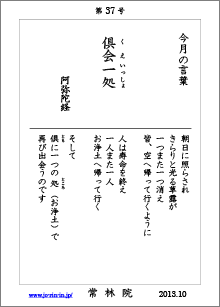 第 37 号
今月の言葉
倶会一処
くえいっしょ
阿弥陀経
朝日に照らされ
きらりと光る草露が
一つまた一つ消え
皆、空へ帰って行くように
人は寿命を終え
一人また一人
お浄土へ帰って行く
そして
倶に一つの処（お浄土）で
再び出会うのです
常 林 院
2013.10